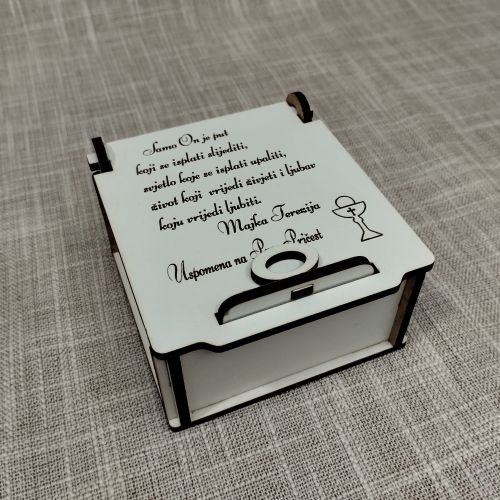 Samo On je put
koji se isplati slijediti,
svjetlo koje se isplati upaliti,
život koji vrijedi živjeti i ljubav
koju vrijedi ljubiti.
Majka Terezija
Uspomena na Pričest